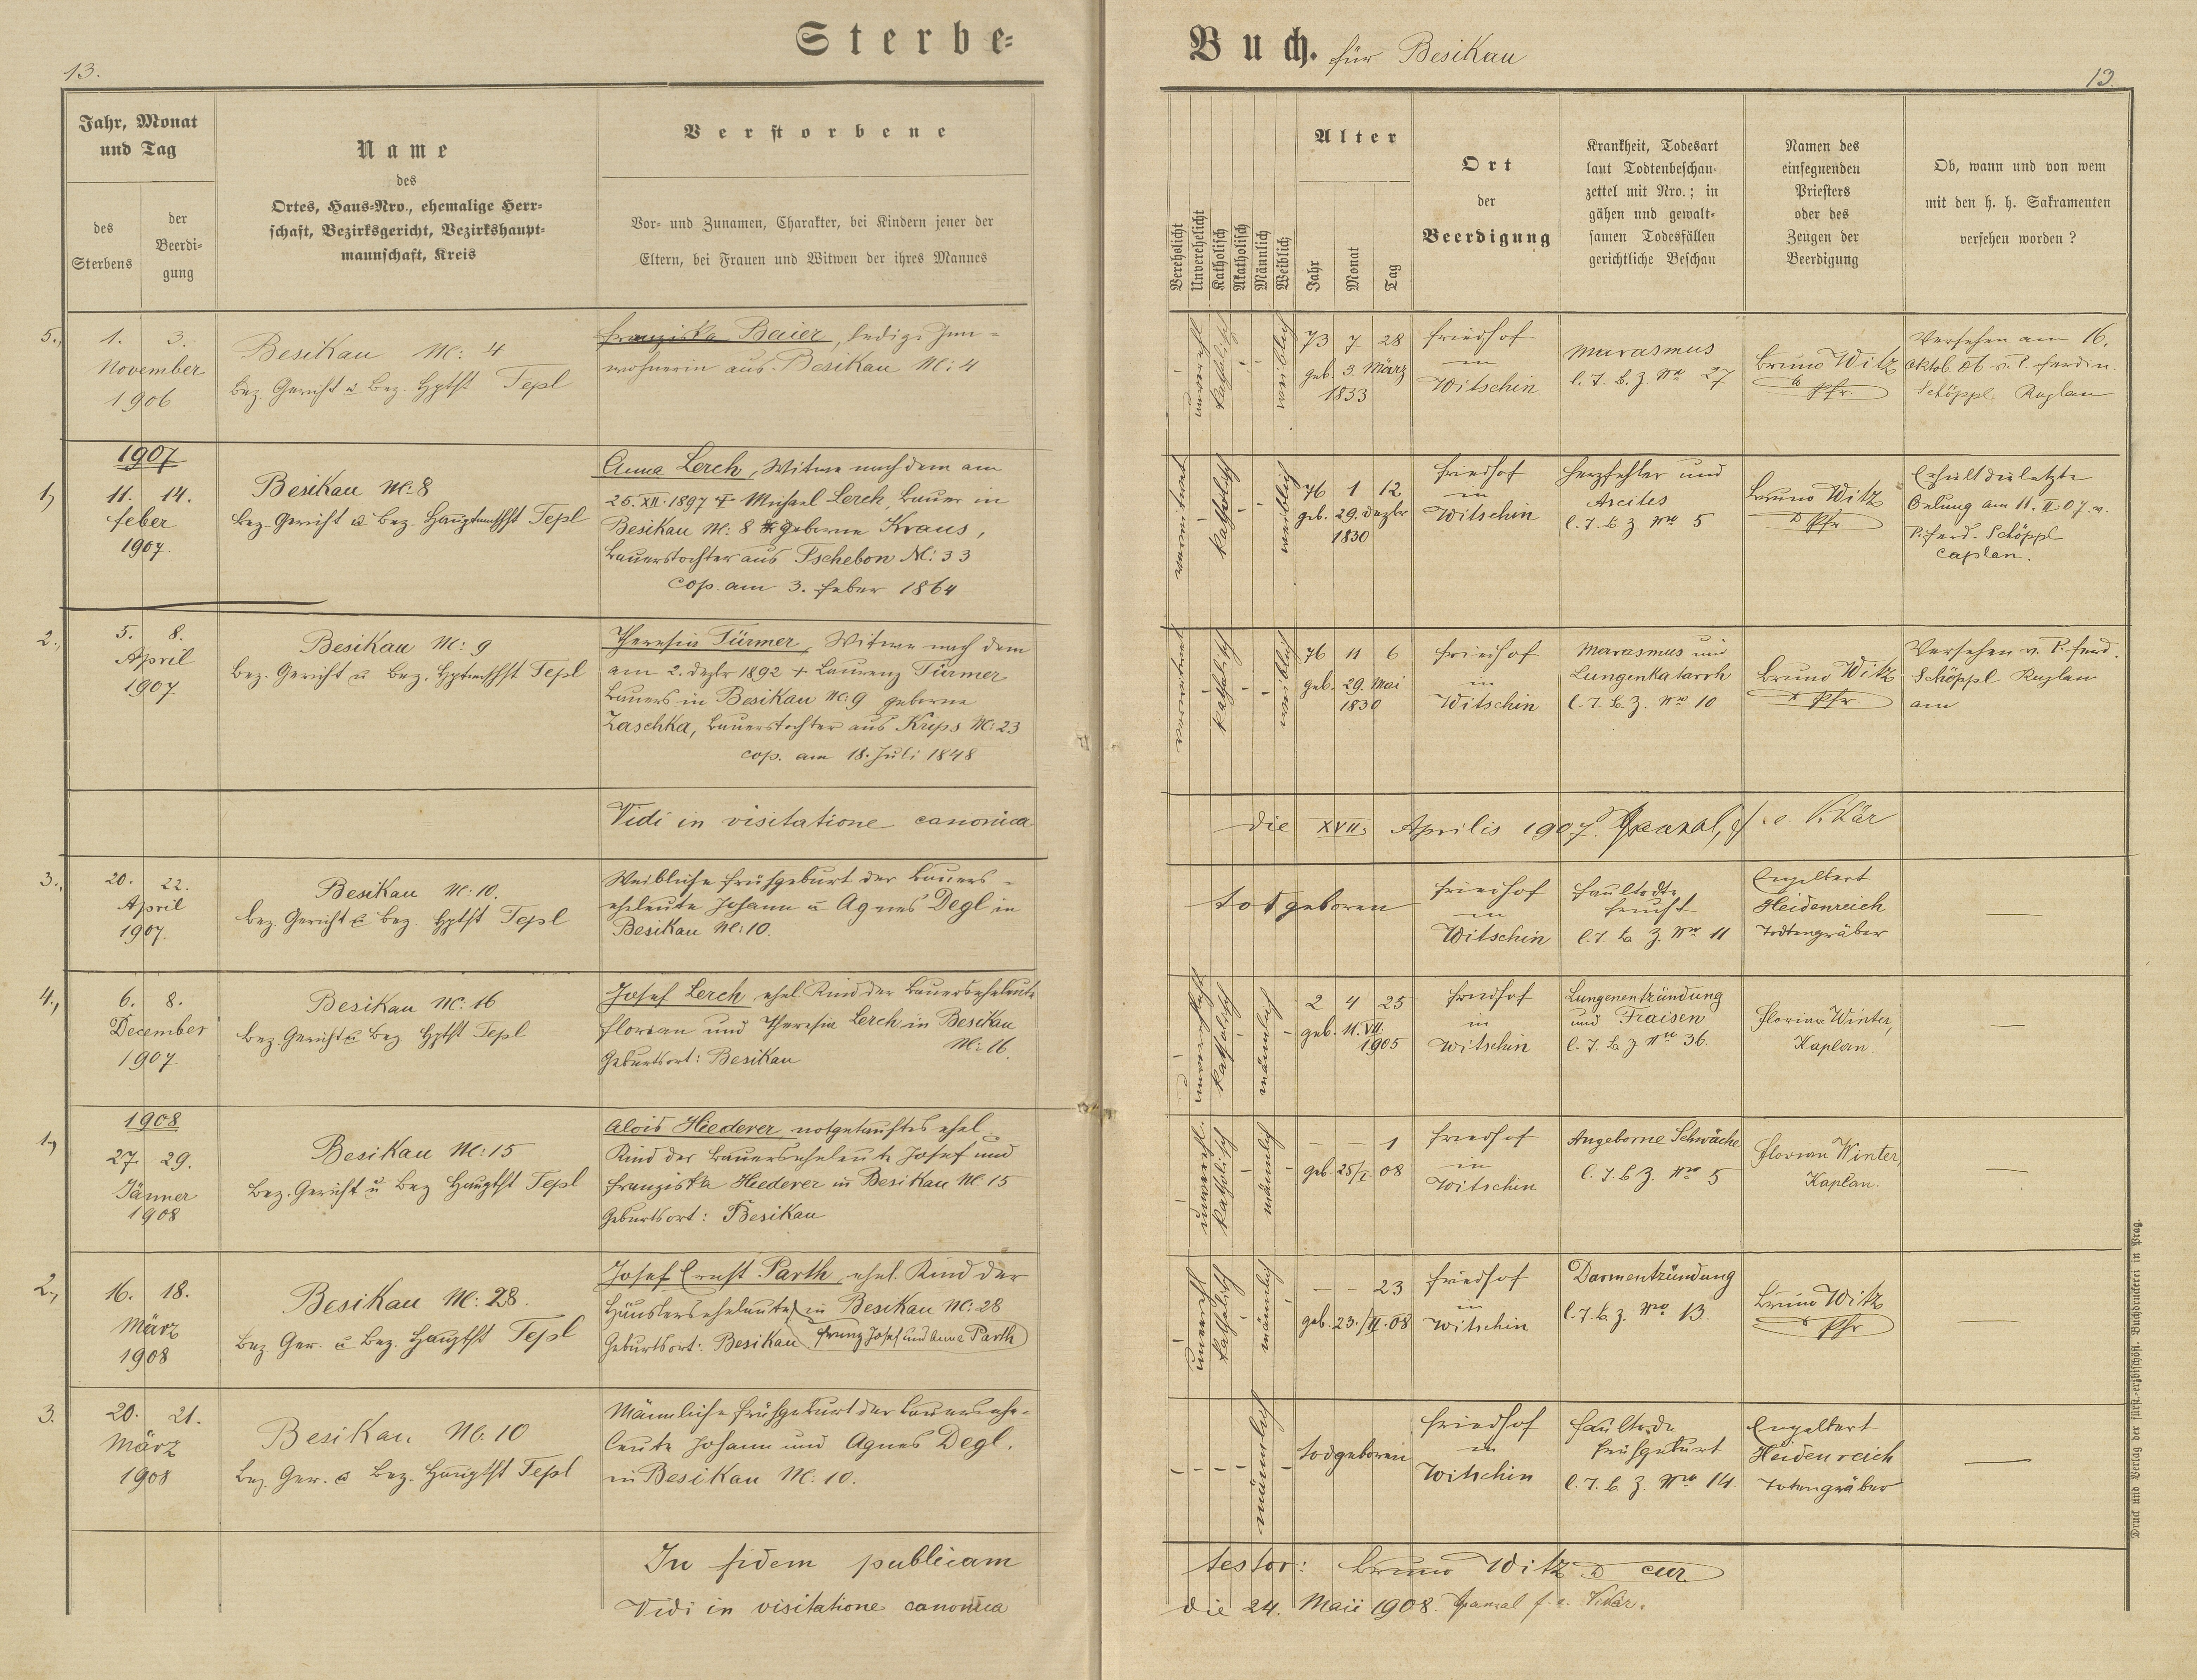 13.
Sterbe-
Buch. für Besikau
13.
Jahr, Monat
und Tag
des
Sterbens
der
Beerdi-
gung
Name
des
Ortes, Haus-Nro., ehemalige Herr-
schaft, Bezirksgericht, Bezirkshaupt-
mannschaft, Kreis
Verstorbene
Vor- und Zunamen, Charakter, bei Kindern jener der
Eltern, bei Frauen und Witwen der ihres Mannes
Verehelicht
Unverehelicht
Katholisch
Akatholisch
Männlich
Weiblich
Alter
Jahr
Monat
Tag
Ort
der
Beerdigung
Krankheit, Todesart
laut Todtenbeschau-
zettel mit Nro.; in
gähen und gewalt-
samen Todesfällen
gerichtliche Beschau
Namen des
einsegnenden
Priesters
oder des
Zeugen der
Beerdigung
Ob, wann und von wem
mit den h. h. Sakramenten
versehen worden?
5.,
1. 3.
November
1906
Besikau Nc: 4
Bez. Gericht u Bez. Hptft Tepl
Franziska Baier, ledige Inn-
wohnerin aus Besikau Nc: 4
katholisch
weiblich
73 7 28
geb. 3. März
1833
Friedhof
in
Witschin
Marasmus
l. T. B. Z. Nro 27
Bruno Witz
Pfr.
Versehen am 16.
Oktob. 06 v. P. Ferdin.
Schöppl Kaplan
1907
1,
11. 14.
Feber
1907.
Besikau Nc: 8
Bez. Gericht u Bez. Hauptmschft Tepl
Anna Lerch, Witwe nach dem am
25. XII. 1897 † Michael Lerch, Bauer in
Besikau Nc: 8 geborne Kraus,
Bauerstochter aus Tschebon Nc: 33
cop. am 3. Feber 1864
verwitwet
katholisch
weiblich
76 1 12
geb. 29. Dezbr
1830
Friedhof
in
Witschin
Herzfehler und
Ascites
l. T. B. Z. Nro 5
Bruno Witz
Pfr
Erhielt die letzte
Oelung am 11. II 07 v.
P. Ferd. Schöppl
Caplan.
2.,
5. 8.
April
1907.
Besikau Nc: 9
Bez. Gericht u Bez. Hptmschft Tepl
Theresia Türmer, Witwe nach dem
am 2. Dezbr 1892 † Laurenz Türmer
Bauers in Besikau Nc: 9 geborne
Zaschka, Bauerstochter aus Krips Nc: 23
cop. am 18. Juli 1848
verwitwet
katholisch
weiblich
76 11 6
geb. 29. Mai
1830
Friedhof
in
Witschin
Marasmus und
Lungenkatarrh
l. T. B. Z. Nro 10
Bruno Witz
Pfr.
Versehen v. P. Ferd.
Schöppl Kaplan
am
Vidi in visitatione canonica
die XVII. Aprilis 1907.
3.,
20. 22.
April
1907.
Besikau Nc: 10.
Bez. Gericht u Bez. Hptft Tepl
Weibliche Frühgeburt der Bauers-
eheleute Johann u Agnes Degl in
Besikau Nc: 10.
todgeboren
Friedhof
in
Witschin
Faultodte
Frucht
l. T. B. Z. Nro 11
Engelbert
Heidenreich
Todtengräber
4.,
6. 8.
December
1907.
Besikau Nc: 16
Bez. Gericht u Bez. Hptft Tepl
Josef Lerch, ehel. Kind der Bauerseheleute
Florian und Theresia Lerch in Besikau
Nc: 16.
Geburtsort: Besikau
unverehelicht
katholisch
männlich
2 4 25
geb. 11. VII.
1905
Friedhof
in
Witschin
Lungenentzündung
und Fraisen
l. T. B. Z Nro 36.
Florian Winter,
Kaplan.
1908
1,
27. 29.
Jänner
1908
Besikau Nc: 15
Bez. Gericht u Bez Hauptft Tepl
Alois Hiederer, notgetauftes ehel.
Kind der Bauerseheleute Josef und
Franziska Hiederer in Besikau Nc. 15
Geburtsort: Besikau
unverehel.
katholisch
männlich
— — 1
geb. 25/I. 08
Friedhof
in
Witschin
Angeborne Schwäche
l. T. B Z. Nro 5
Florian Winter,
Kaplan.
2.,
16. 18.
März
1908
Besikau Nc: 28.
Bez. Ger. u Bez. Hauptft Tepl
Josef Ernst Parth, ehel. Kind der
Häuslerseheleute in Besikau Nc: 28
Geburtsort: Besikau Franz Josef und Anna Parth
unverehl
katholisch
männlich
— — 23
geb. 23./II. 08
Friedhof
in
Witschin
Darmentzündung
l. T. B. Z. Nro 13.
Bruno Witz
Pfr
3.
20. 21.
März
1908
Besikau Nc. 10
Bez. Ger. u Bez. Hauptft Tepl
Männliche Frühgeburt der Bauersehe-
leute Johann und Agnes Degl.
in Besikau Nc: 10.
männlich
todgeboren
Friedhof
in
Witschin
Faultode
Frühgeburt
l. T. B. Z. Nro 14.
Engelbert
Heidenreich
Totengräber
In fidem publicam
testor: Bruno Witz cur.
Vidi in visitatione canonica
die 24. Maii 1908.
Druck und Verlag der fürst.-erzbischöfl. Buchdruckerei in Prag.